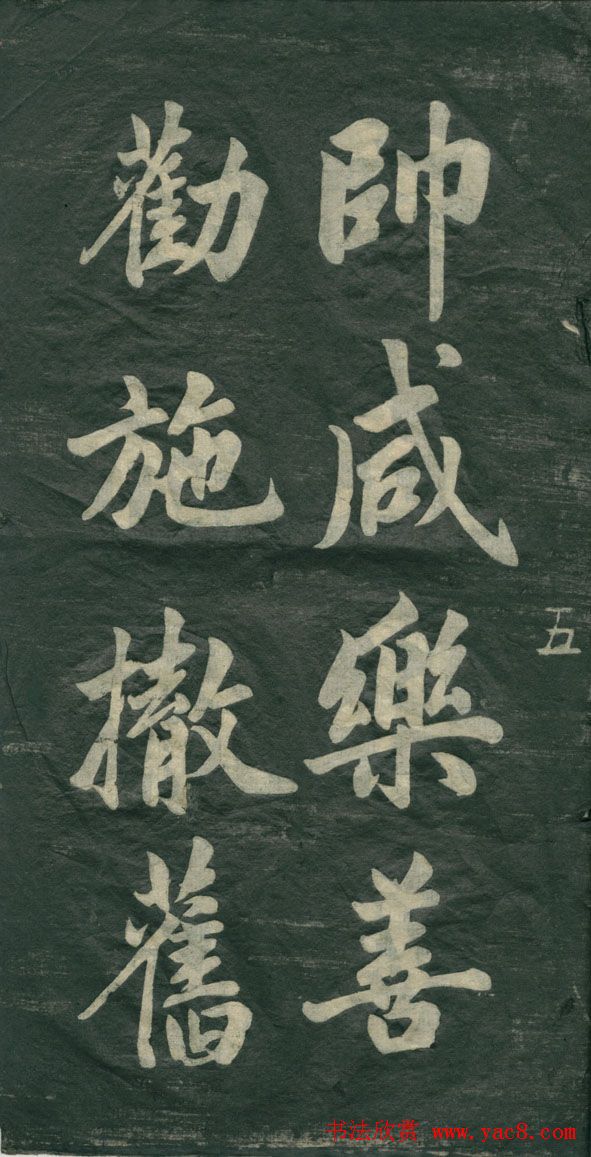 帥咸樂善
勸施撤舊
五
书法欣赏 www.yac8.com